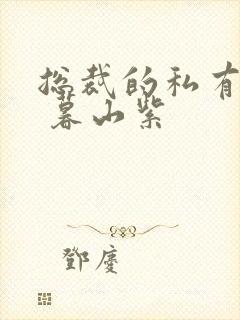 总裁的私有
暮山紫
鄧慶